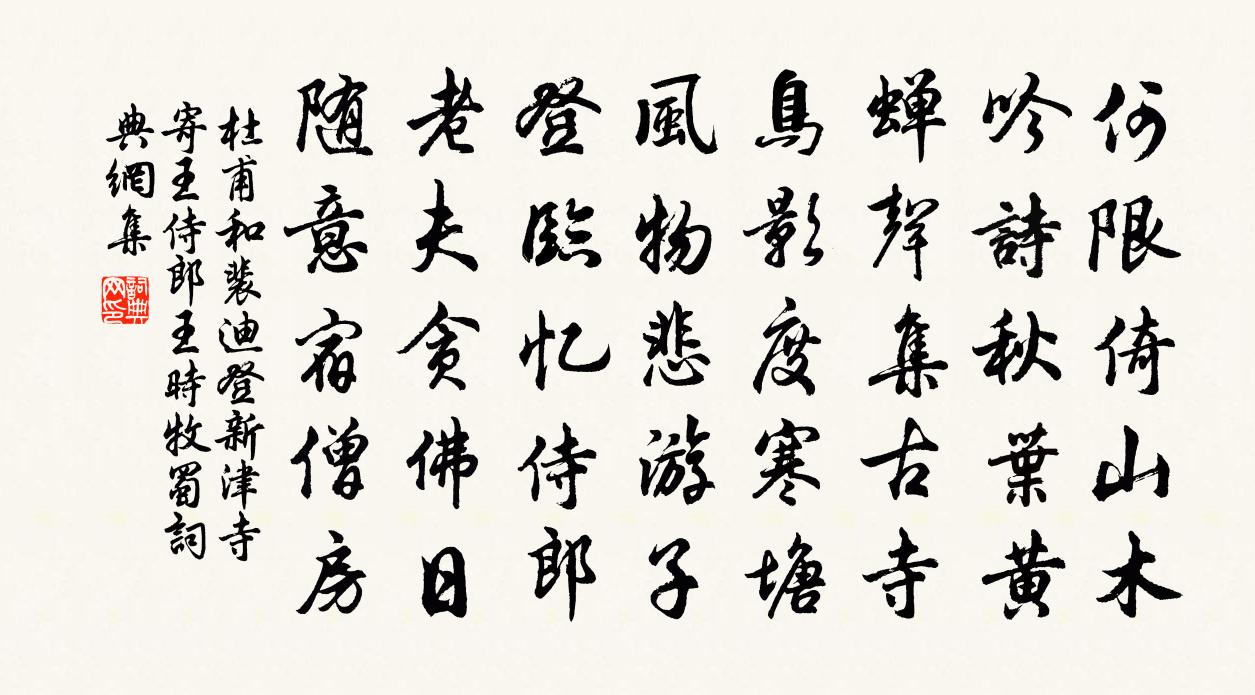 何限倚山木
吟詩秋葉黃
蟬聲集古寺
鳥影度寒塘
風物悲游子
登臨忆侍郎
老夫貪佛日
随意宿僧房
杜甫和裴迪登新津寺
寄王侍郎王時牧蜀詞
典網集
詞典
网印